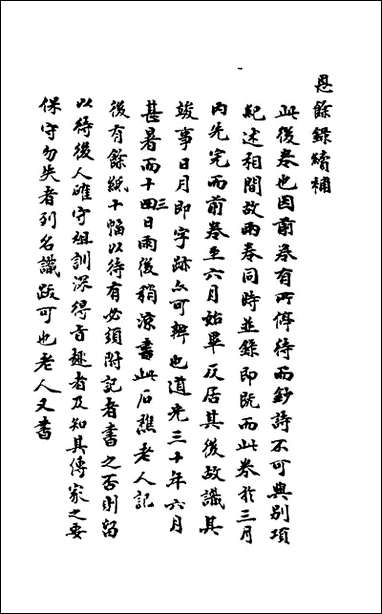 恩餘錄續補
此後卷也因前卷有所停待而鈔詩不可與別項
紀述相間故兩卷同時並錄即既而此卷於三月
內先完而前卷至六月始畢反居其後故識其
竣事日月即字跡亦可辨也道光三十年六月
甚暑而十四三日雨後稍涼書此石樵老人記
後有餘紙十幅以待有必須附記者書之否則留
以待後人確守祖訓深得旨趣者及知其傳家之要
保守勿失者列名識跋可也老人又書